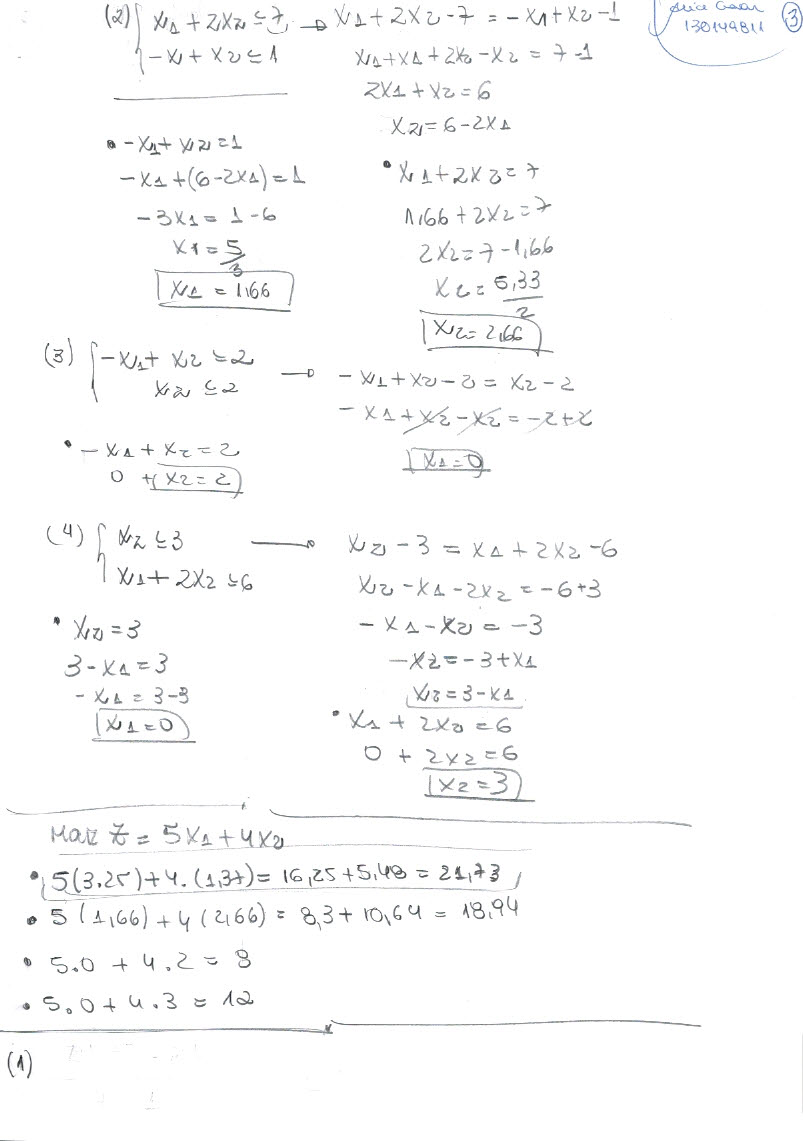 (2) { x1 + 2x2 ≤ 7 → x1 + 2x2 - 7 = -x1 + x2 - 1
-x1 + x2 ≤ 1
x1 + x1 + 2x2 - x2 = 7 - 1
2x1 + x2 = 6
x2 = 6 - 2x1
• -x1 + x2 = 1
-x1 + (6 - 2x1) = 1
-3x1 = 1 - 6
x1 = 5/3
x1 = 1,66
• x1 + 2x2 = 7
1,66 + 2x2 = 7
2x2 = 7 - 1,66
x2 = 5,33/2
x2 = 2,66
130149811 (3)
(3) { -x1 + x2 ≤ 2
x2 ≤ 2
→ -x1 + x2 - 2 = x2 - 2
-x1 + x2 - x2 = -2 + 2
x1 = 0
• -x1 + x2 = 2
0 + x2 = 2
(4) { x2 ≤ 3
x1 + 2x2 ≤ 6
→ x2 - 3 = x1 + 2x2 - 6
x2 - x1 - 2x2 = -6 + 3
-x1 - x2 = -3
-x2 = -3 + x1
x2 = 3 - x1
• x2 = 3
3 - x1 = 3
-x1 = 3 - 3
x1 = 0
• x1 + 2x2 = 6
0 + 2x2 = 6
x2 = 3
Max Z = 5x1 + 4x2
• 5(3.25) + 4.(1,37) = 16,25 + 5,48 = 21,73
• 5(1,66) + 4(2,66) = 8,3 + 10,64 = 18,94
• 5.0 + 4.2 = 8
• 5.0 + 4.3 = 12
(1)